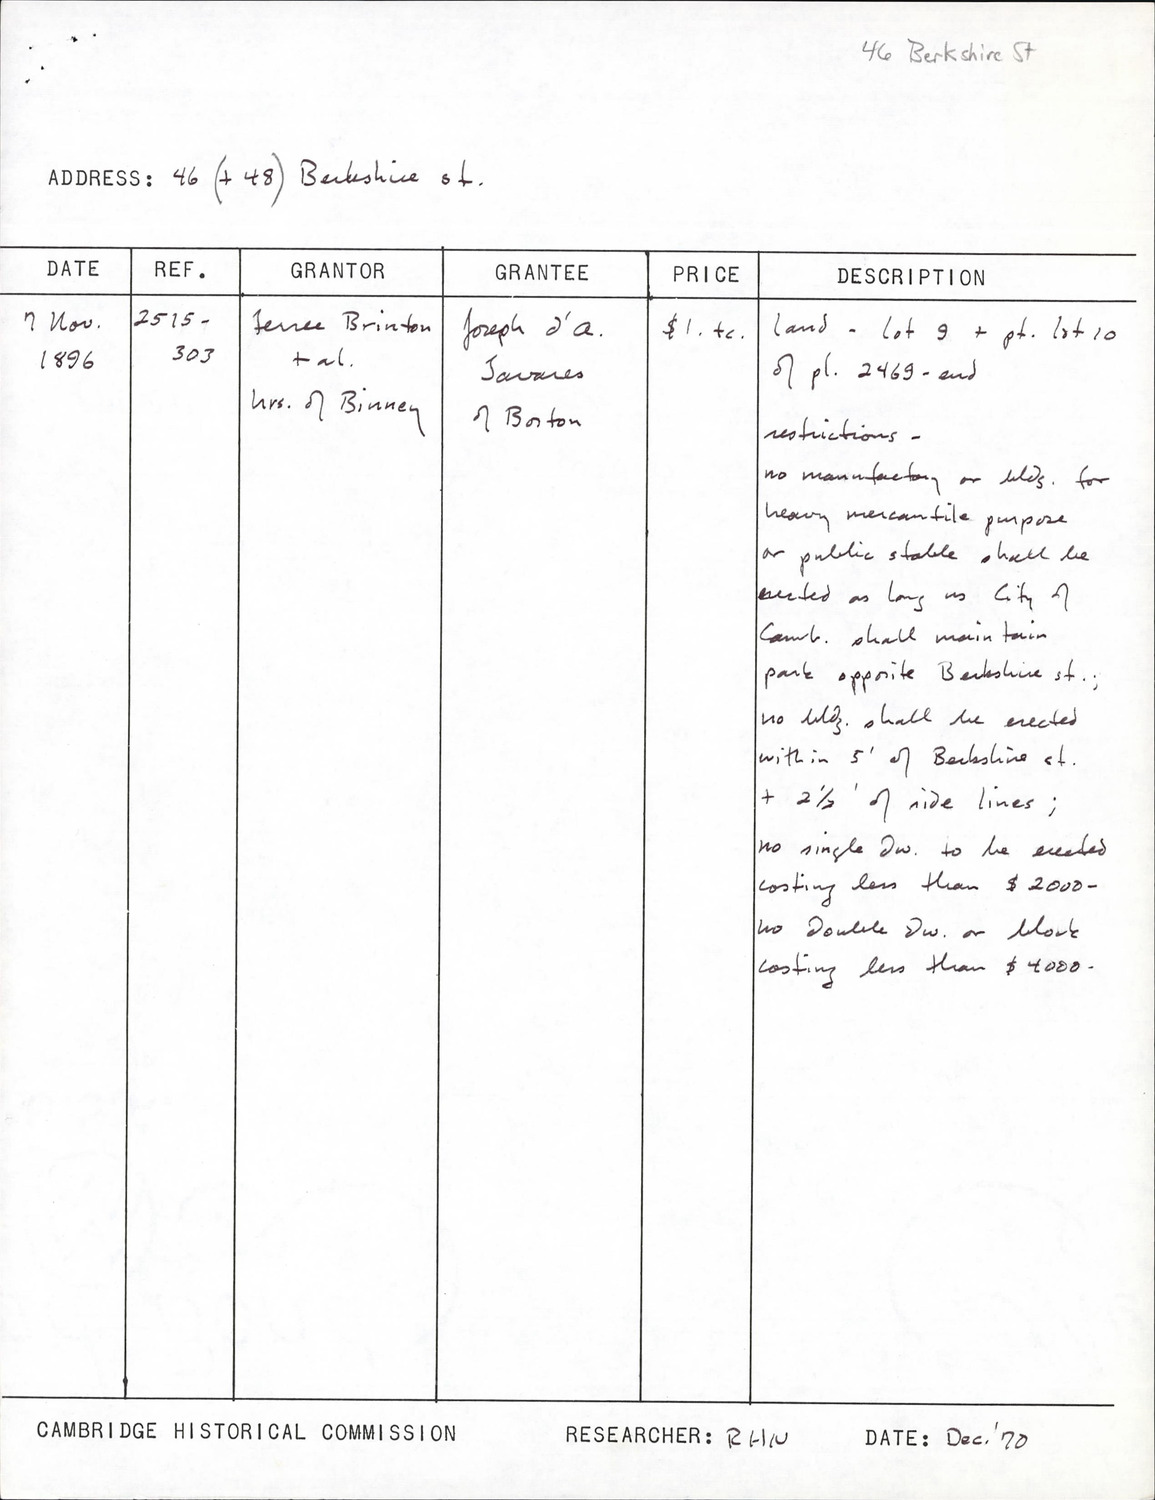 46 Berkshire St
ADDRESS: 46 (+ 48) Berkshire st.
DATE REF. GRANTOR GRANTEE PRICE DESCRIPTION
7 Nov.
1896
2515-
303
Brinton
+ al.
hrs. of Binney
Joseph d'A.
Tavares
of Boston
$1. tc.
land - lot 9 + pt. lot 10
of pl. 2469-end
restrictions -
no manufactory or bldg. for
heavy mercantile purpose
or public stable shall be
erected as long as City of
Camb. shall maintain
park opposite Berkshire st.;
no bldg. shall be erected
within 5' of Berkshire st.
+ 2½' of side lines;
no single dw. to be erected
costing less than $2000-
no double dw. or block
costing less than $4000-
CAMBRIDGE HISTORICAL COMMISSION RESEARCHER: RHN DATE: Dec. '70